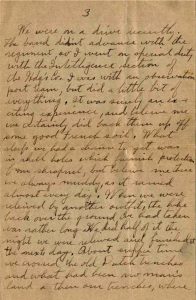 3
We were on a drive recently.
The band didn't advance with the
regiment so I went on special duty,
with the Intelligence section of
the Hdqrs Co. I was with an observation
post team, but did a little bit of
everything. It was surely an ex-
citing experience, and believe me
we certainly did back them up off
some good French soil. What
sleep we had a chance to get was
in shell holes which furnish protection
from shrapnel, but believe me they
we always muddy, as it rained
almost every day. When we were
relieved by another outfit, the hike
back over the ground we had taken
was rather long. We hiked half of it the
night we were relieved and finished
the next day. About
we crossed the old trenches
and what had been no man's
land a then our trenches, where